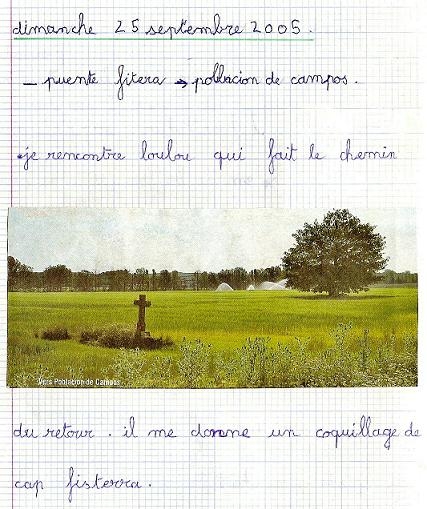 dimanche 25 septembre 2005.
- puente fitera → poblacion de campos.
je rencontre loulou qui fait le chemin
Vers Población de Campos
du retour. il me donne un coquillage de
cap fisterra.